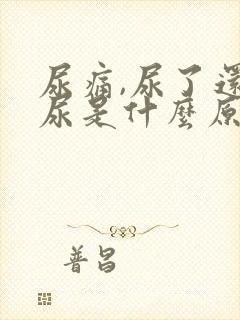 尿痛,尿了還
尿是什麼原
普昌